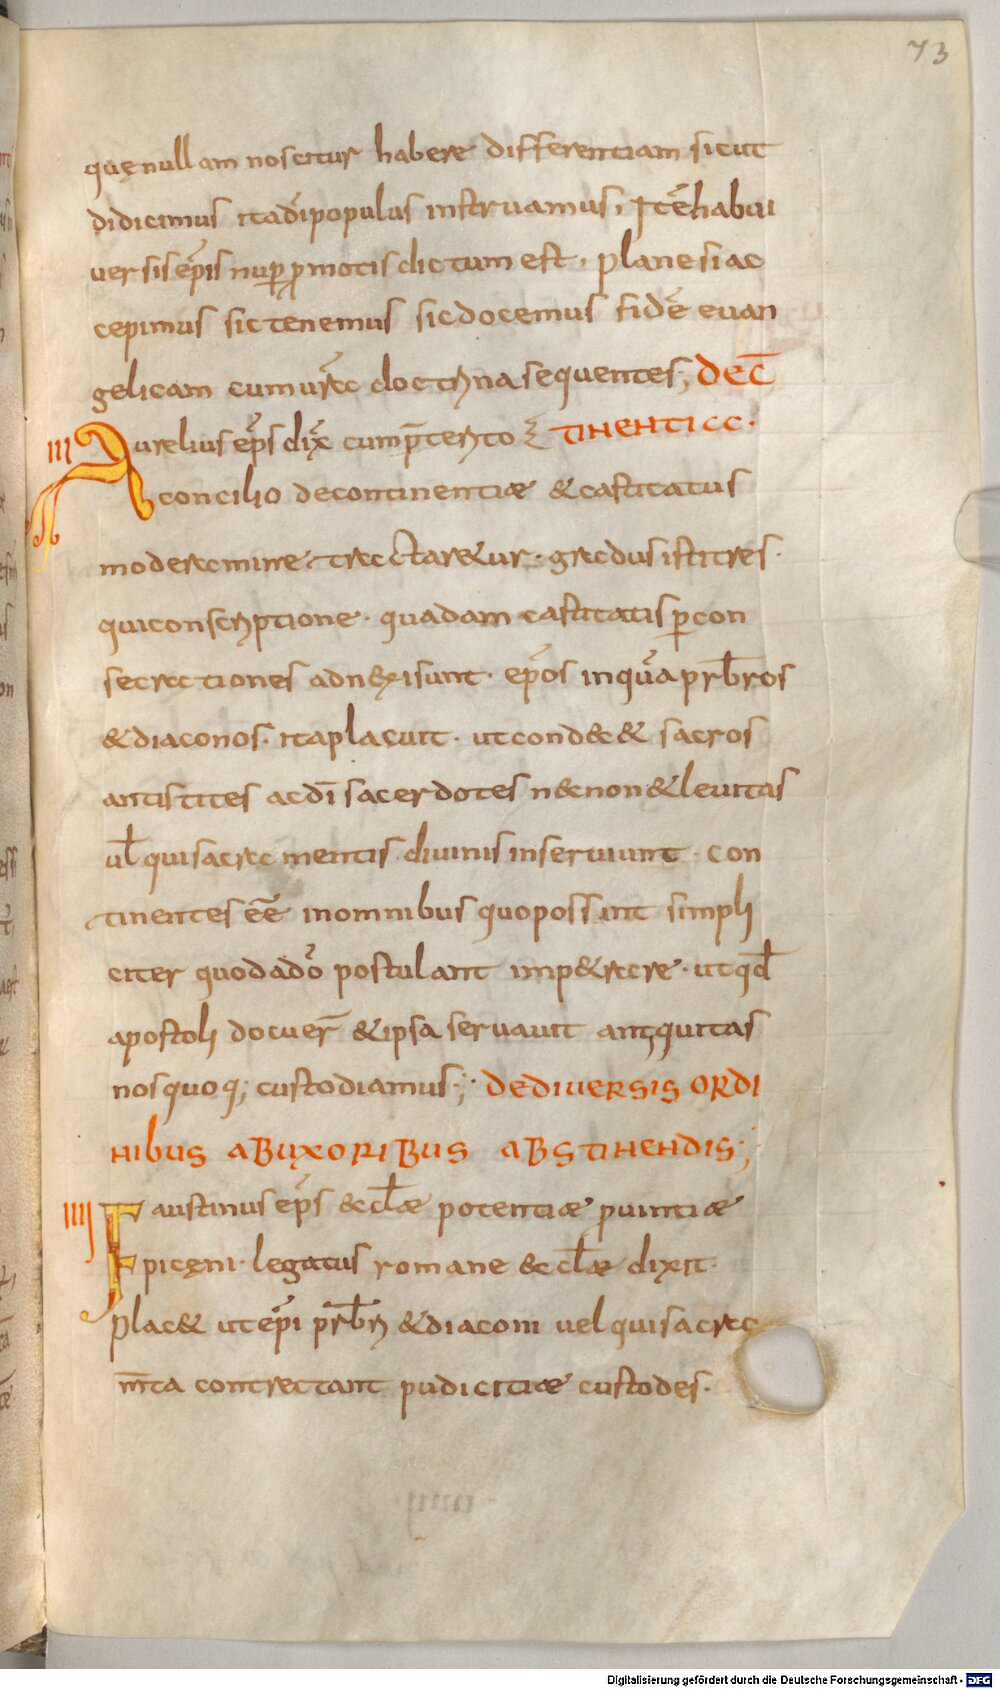 73
quę nullam noscitur habere differentiam sicut
didicimus ita dī populus instruamus; Itē habui
uersis ep̄is nup̱ p̱motis dictum est, plane si ac
cepimus sic tenemus sic docemus fidē euan
gelicam cum ur̄ac doctrina sequentes; DECT̄
III Aurelius ep̄s dix̄ cum p̄terito TINENTIA.
concilio de continentiae & castitatus
moderamine tractar&ur. gradus isti tres.
qui conscriptione. quadam castitatis p̱ con
secrationes adnexi sunt. ep̄os inquā pr̄b̄ros
& diaconos. ita placuit. ut cond&& sacros
antistites ac dī sacerdotes n&non & leuitas
ul̄ qui sacra mentis diuinis inseruiunt. con
tinentes eē̄ in omnibus quo possint simpli
citer quod a dō postulant imp&rare. ut qd̄
apostoli docuer̄ & ipsa seruauit antiquitas
nos quoq; custodiamus; DE DIUERSIS ORDI
NIBUS AB UXORIBUS ABSTINENDIS;
IIII Faustinus ep̄s &cl̄ae potentiae p̱uintiae
picęni. legatus romane &cl̄ae dixit.
plac& ut ep̄i pr̄b̄ri & diaconi uel qui sacra
m̄ta contrectant pudicitiae custodes.
Digitalisierung gefördert durch die Deutsche Forschungsgemeinschaft - DFG